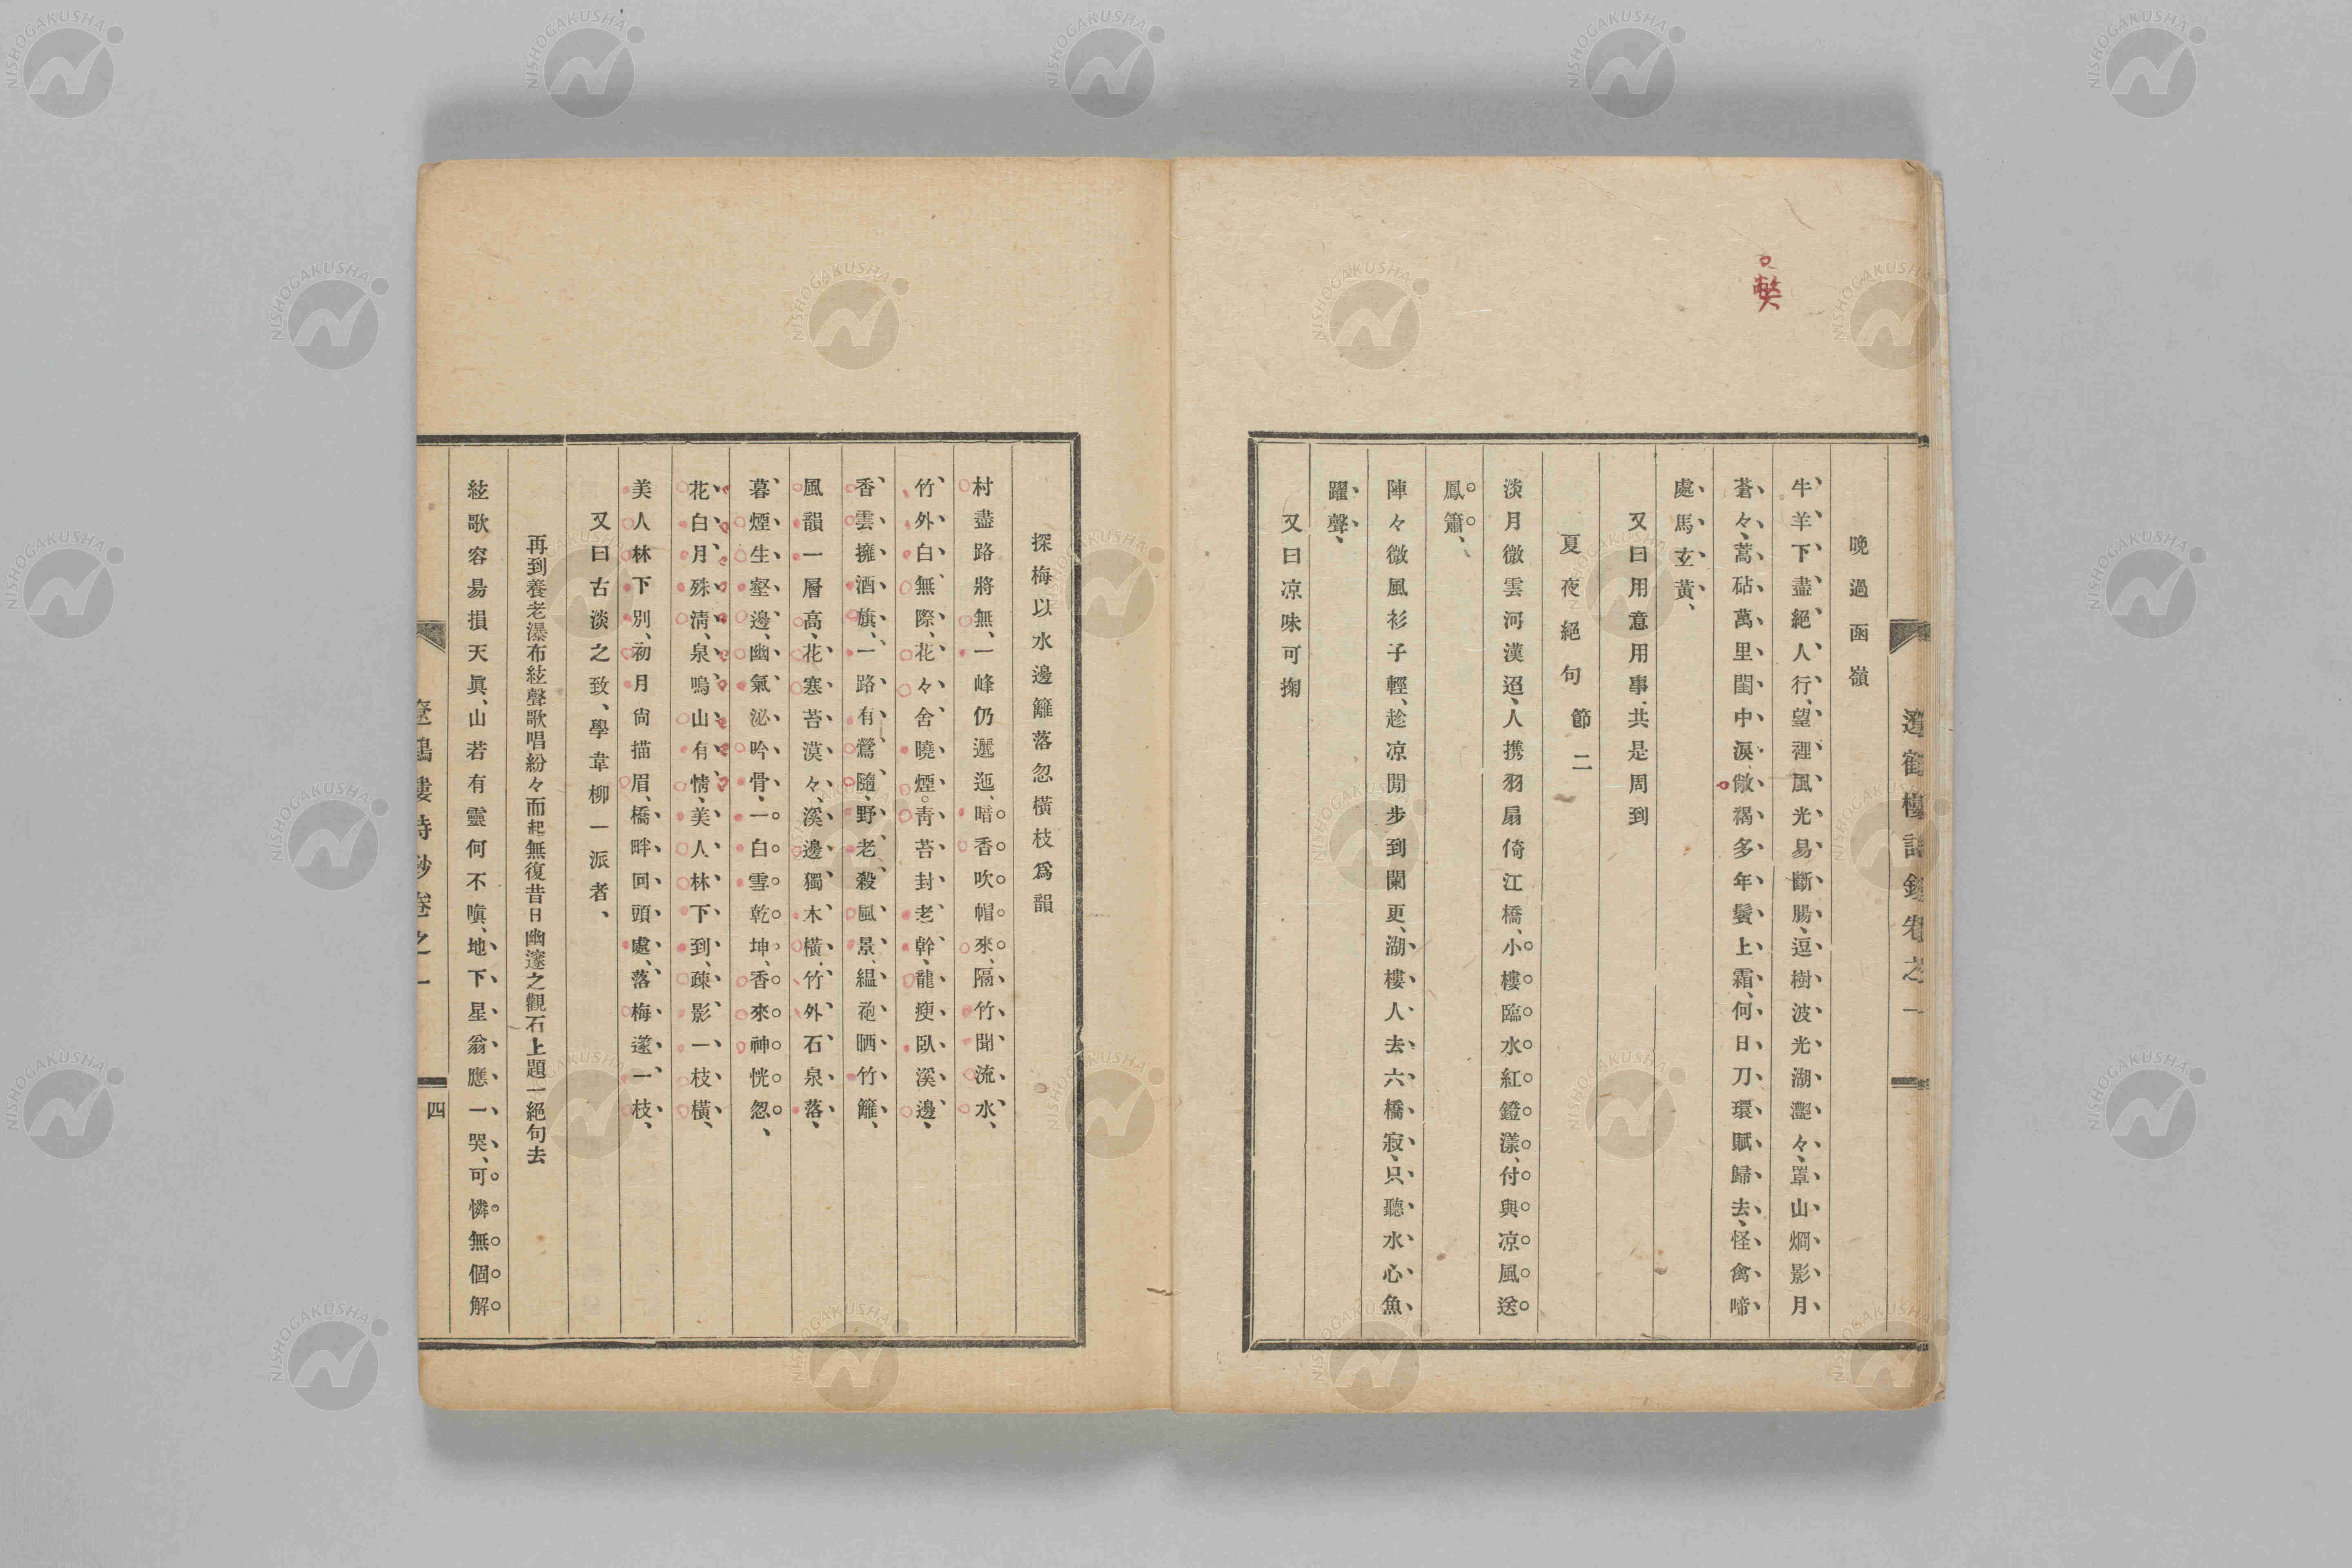 敝
晩過函嶺
牛羊下盡絕人行、望裡風光易斷腸、逗樹波光湖灔々、罩山烟影月
蒼々、蒿砧萬里閨中淚、敞褐多年鬢上霜、何日刀環賦歸去、怪禽啼
處馬玄黃、
又曰用意用事、共是周到
夏夜絕句 節二
淡月微雲河漢迢、人携羽扇倚江橋、小樓臨水紅鐙漾、付與凉風送
鳳簫、
陣々微風衫子輕、趁凉閒步到闌更、湖樓人去六橋寂、只聽水心魚
躍聲、
又曰凉味可掬
探梅以水邊籬落忽橫枝爲韻
村盡路將無、一峰仍邐迤、暗香吹帽來、隔竹聞流水、
竹外白無際、花々舍曉煙。靑苔封老幹、龍瘦臥溪邊、
香雲擁酒旗、一路有鶯隨、野老殺風景、縕袍晒竹籬、
風韻一層高、花寒苔漠々、溪邊獨木橫、竹外石泉落、
暮煙生壑邊、幽氣泌吟骨、一白雪乾坤、香來神恍忽、
花白月殊淸、泉鳴山有情、美人林下到、疎影一枝橫、
美人林下別、初月尙描眉、橋畔回頭處、落梅遂一枝、
又曰古淡之致、學韋柳一派者、
再到養老瀑布絃聲歌唱紛々而起無復昔日幽邃之觀石上題一絕句去
絃歌容易損天眞、山若有靈何不嗔、地下星翁應一哭、可憐無個解
樓詩鈔卷之一
四